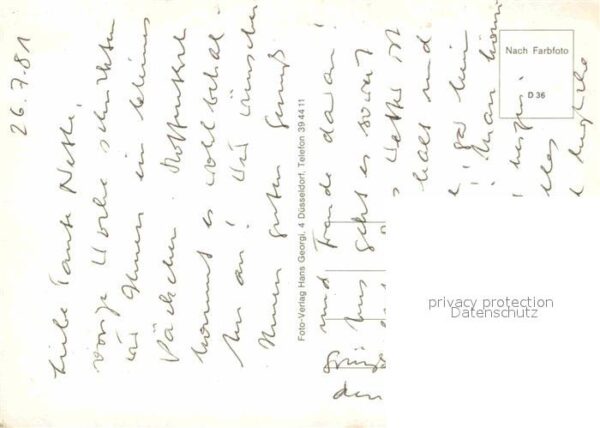 26.7.81
Liebe Tante Netti,
vorige Woche schickten
wir Ihnen ein kleines
Päckchen. Hoffentlich
kommt es wohlbehal-
ten an! Wir wünschen
Ihnen guten Genuß
und Freude daran!
uns geht es soweit
Wetter ist
kalt und
gar kein
Man kann
Foto-Verlag Hans Georgi, 4 Düsseldorf, Telefon 39 44 11
Nach Farbfoto
D 36
privacy protection
Datenschutz